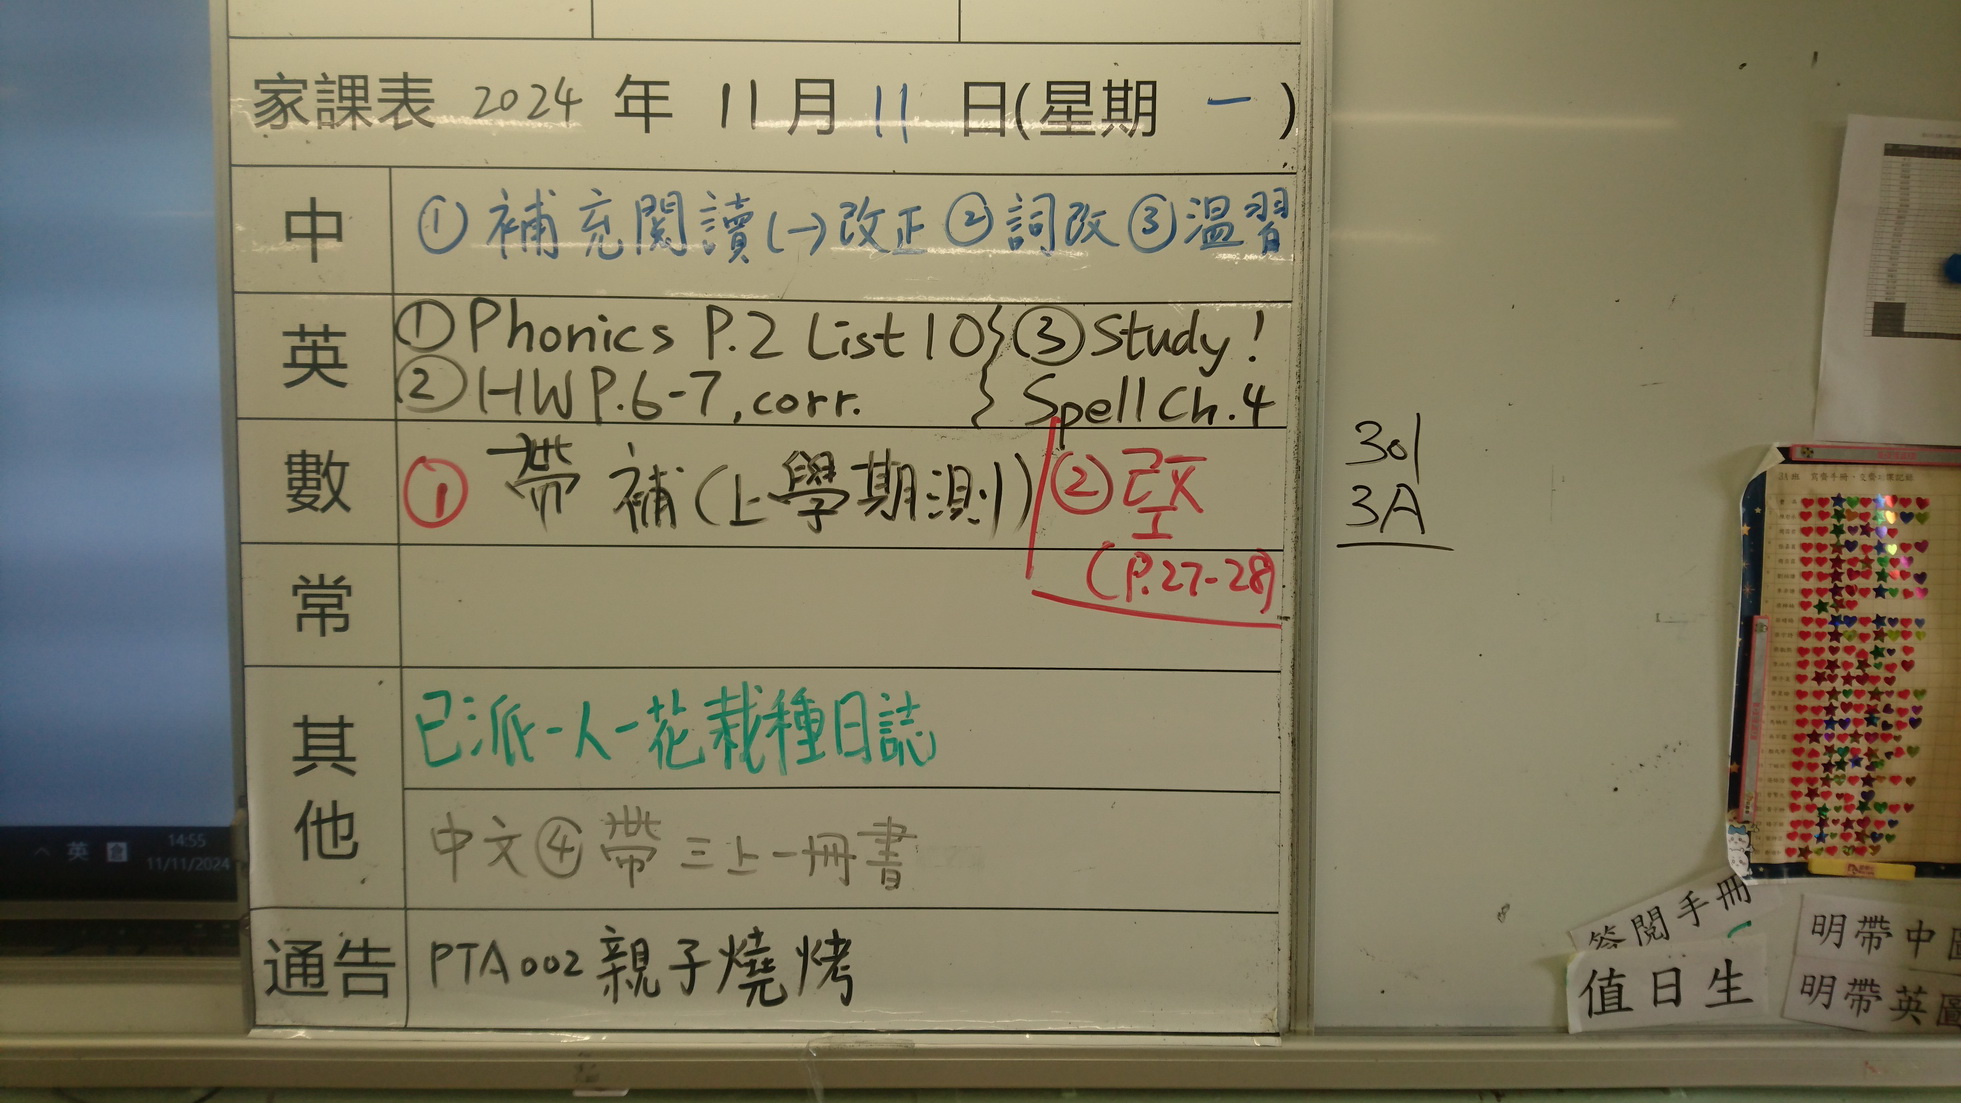 家課表 2024 年 11 月 11 日(星期 一 )
中 ① 補充閱讀(一)改正 ② 詞改 ③ 溫習
英 ① Phonics P.2 List 10 } ③ Study!
② HW P.6-7, corr. } Spell Ch.4
數 ① 帶 補(上學期測)
(P.27-28)
常
其他 已派一人一花栽種日誌
中文④ 帶三上一冊書
通告 PTA 002 親子燒烤
301
3A
英
14:55
11/11/2024
簽閱手冊
值日生
明帶中圖
明帶英圖